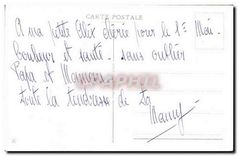 CARTE POSTALE
A ma petite chérie pour le 1er Mai.
Bonheur et santé. sans oublier
Papa et Maman
toute la tendresse de ta
Mamy